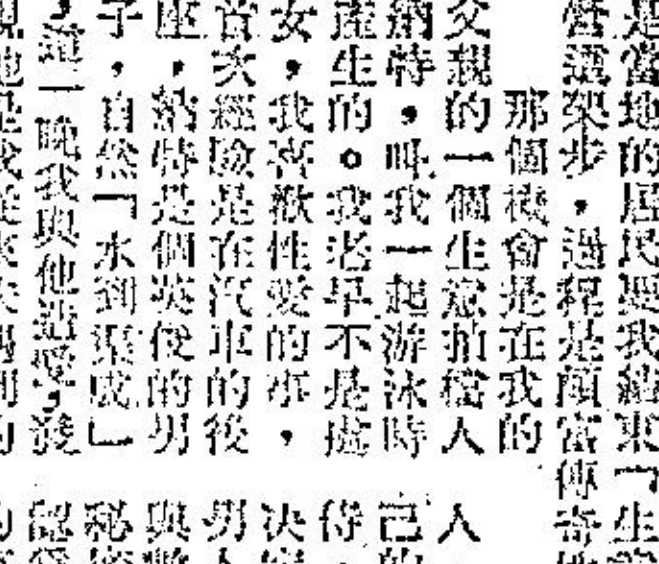 是當地的居民要我繼東「生
營這架步,過程是頗富傳奇
那個機會是在我的
父親的一個生意拍檔人
納特,叫我一起游泳時
產生的。我老早不是處
女,我喜歡性愛的事,
首次經驗是在汽車的後
座,納特是個英俊的男
子,自然「水到渠成」
,這一晚我與他造愛,後
人
己的
侍,
决定
男人
與數
秘密
認爲